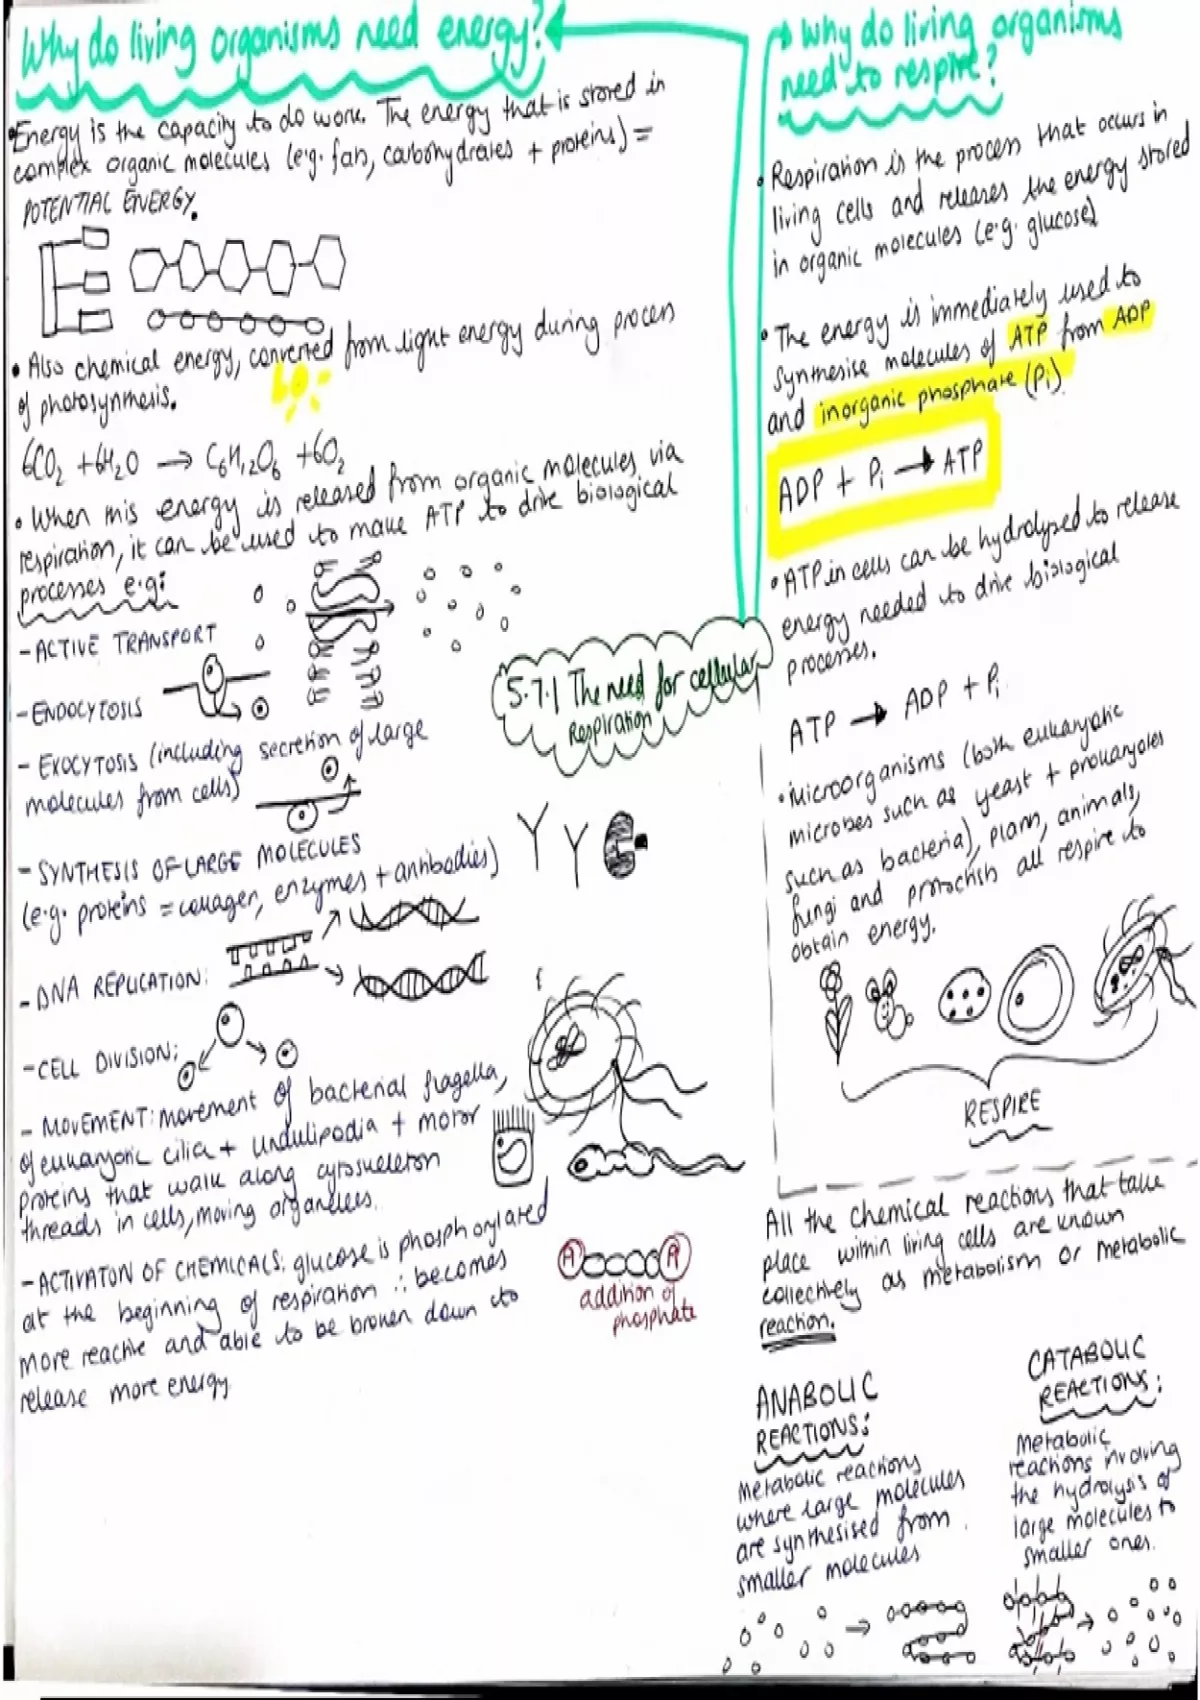 Why do living organisms need energy?
•Energy is the capacity to do work. The energy that is stored in
complex organic molecules (e.g. fats, carbohydrates + proteins) =
POTENTIAL ENERGY.
• Also chemical energy, converted from light energy during process
of photosynthesis.
6CO2 + 6H2O → C6H12O6 + 6O2
• When this energy is released from organic molecules via
respiration, it can be used to make ATP to drive biological
processes e.g:
- ACTIVE TRANSPORT
- ENDOCYTOSIS
- EXOCYTOSIS (including secretion of large
molecules from cells)
- SYNTHESIS OF LARGE MOLECULES
(e.g. proteins = collagen, enzymes + antibodies)
- DNA REPLICATION:
- CELL DIVISION:
- MOVEMENT: movement of bacterial flagella,
of eukaryotic cilia + undulipodia + motor
proteins that walk along cytoskeleton
threads in cells, moving organelles.
- ACTIVATON OF CHEMICALS: glucose is phosphorylated
at the beginning of respiration ∴ becomes
more reactive and able to be broken down to
release more energy
addition of
phosphate
5.7.1 The need for cellular
Respiration
Why do living organisms
need to respire?
• Respiration is the process that occurs in
living cells and releases the energy stored
in organic molecules (e.g. glucose)
• The energy is immediately used to
synthesise molecules of ATP from ADP
and inorganic phosphate (Pi)
ADP + Pi → ATP
• ATP in cells can be hydrolysed to release
energy needed to drive biological
processes.
ATP → ADP + Pi
• Microorganisms (both eukaryotic
microbes such as yeast + prokaryotes
such as bacteria), plants, animals,
fungi and protoctists all respire to
obtain energy.
RESPIRE
All the chemical reactions that take
place within living cells are known
collectively as metabolism or metabolic
reaction.
ANABOLIC
REACTIONS:
Metabolic reactions
where large molecules
are synthesised from
smaller molecules
CATABOLIC
REACTIONS:
Metabolic
reactions involving
the hydrolysis of
large molecules to
smaller ones.